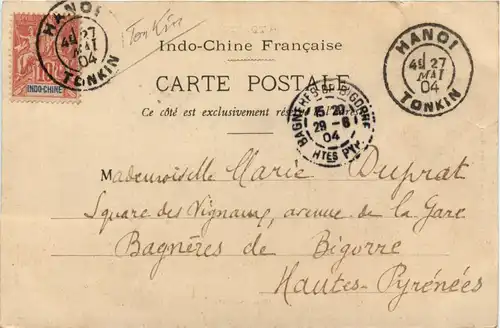 HANOI
4E 27
MAI
04
TONKIN
INDO-CHINE
Tonkin
Indo-Chine Française
CARTE POSTALE
Ce côté est exclusivement
HANOI
4E 27
MAI
04
TONKIN
BAGNÈRES DE BIGORRE
15 20
29 - 6
04
HTES PYR
Mademoiselle Marie Duprat
Square des Vignaux, avenue de la Gare
Bagnères de Bigorre
Hautes-Pyrénées